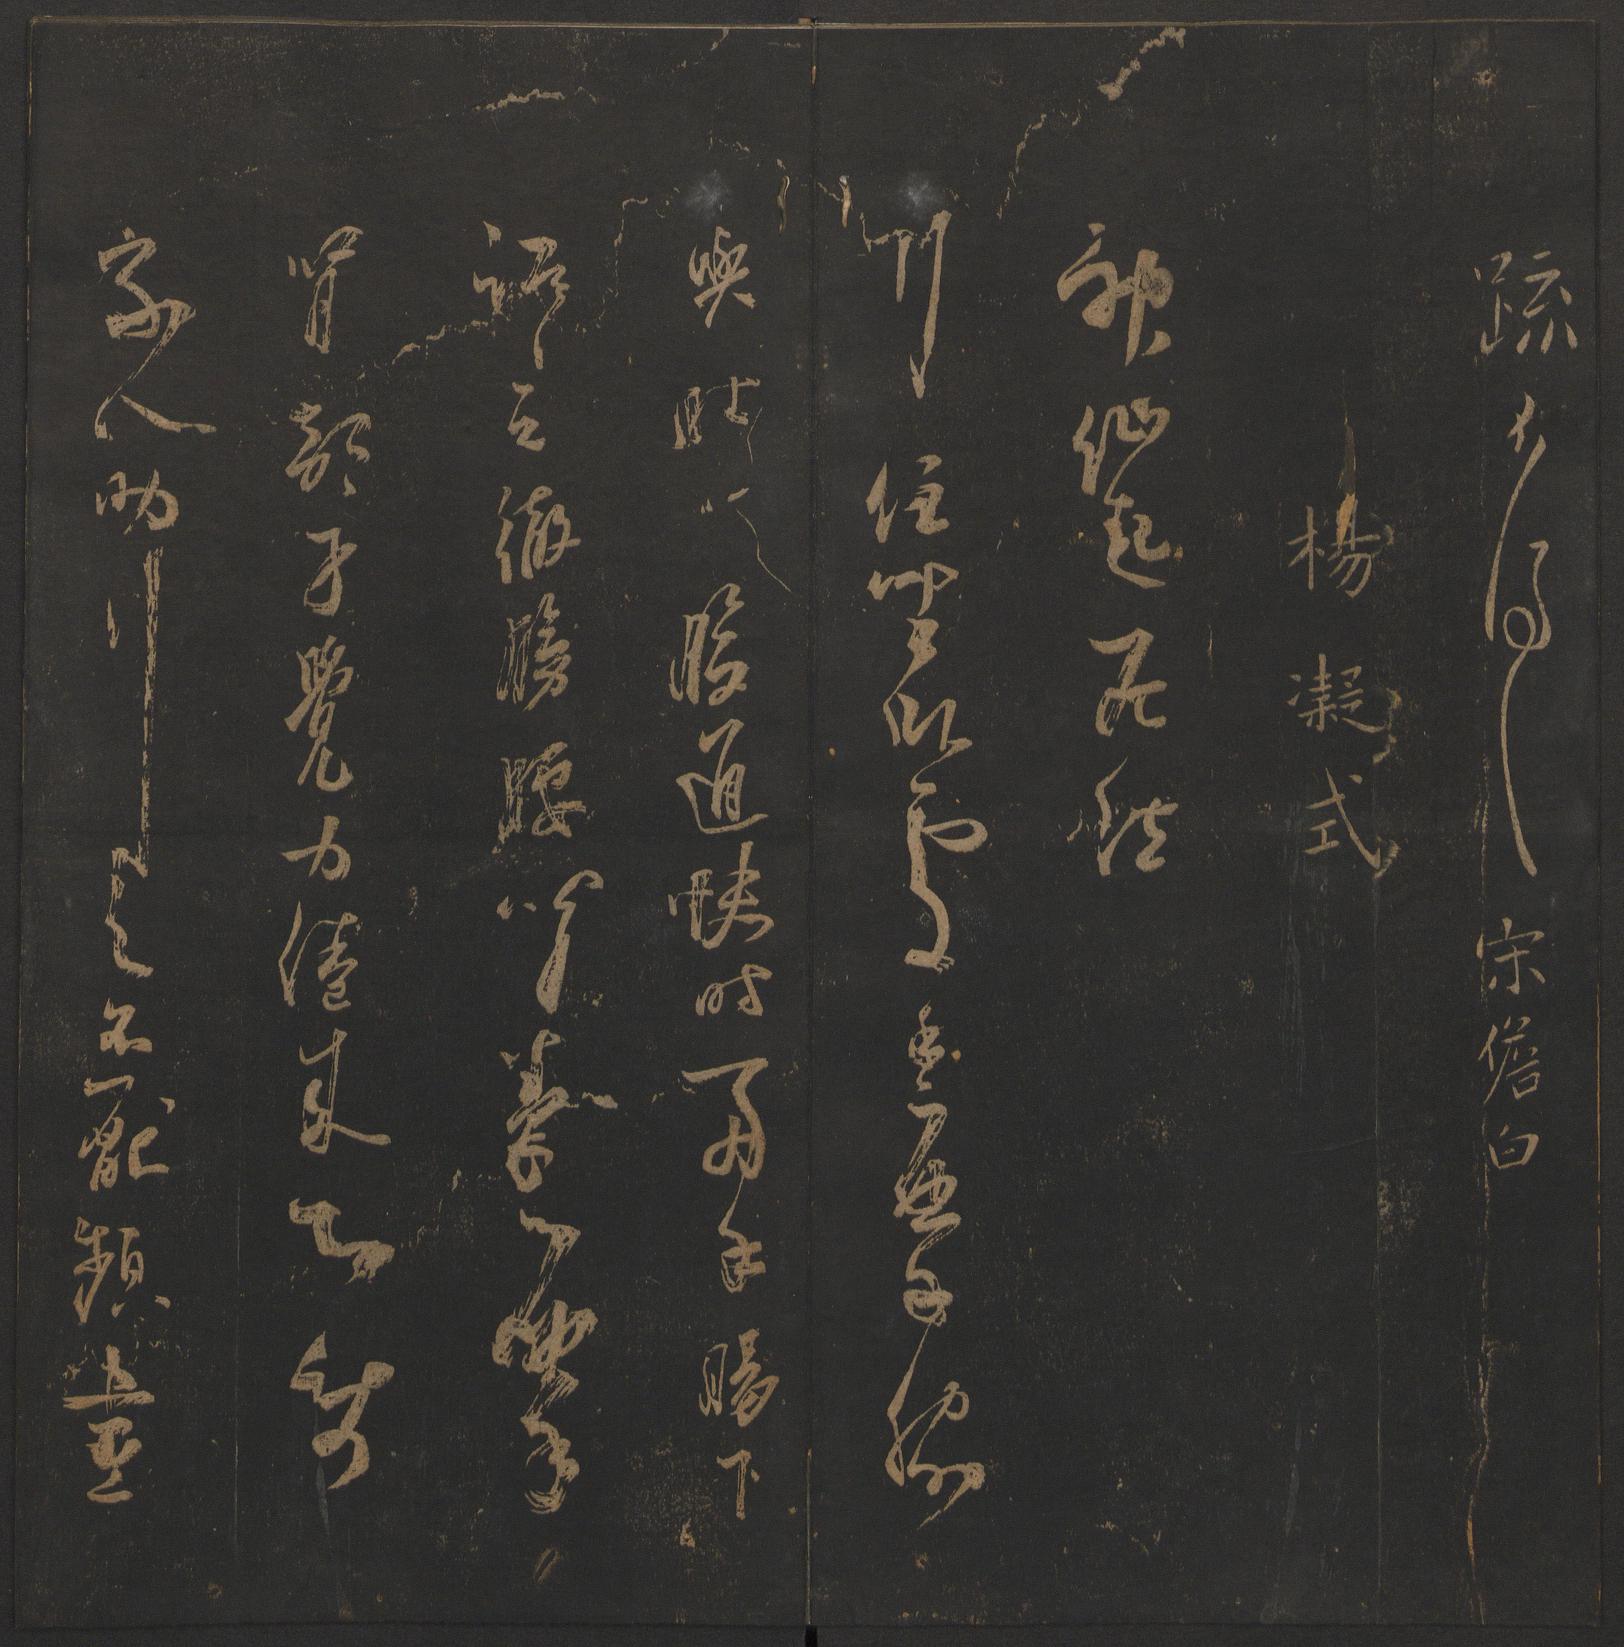 疏多 宋儋白
楊凝式
神仙起居法
行住坐卧處手摩脅
與肚心腹通快時兩手腸下
踞之徹膀腰背拳摩
腎部才覺力倦來即使
家人助行之不厭頻晝